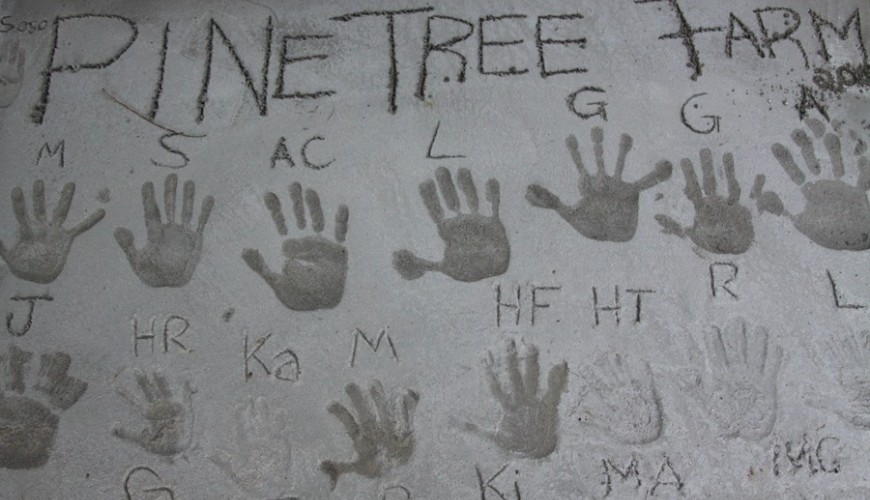 Soso
PINE TREE FARM
M S AC L G G A
J HR Ka M HF HT R L
G Ki MA IMG